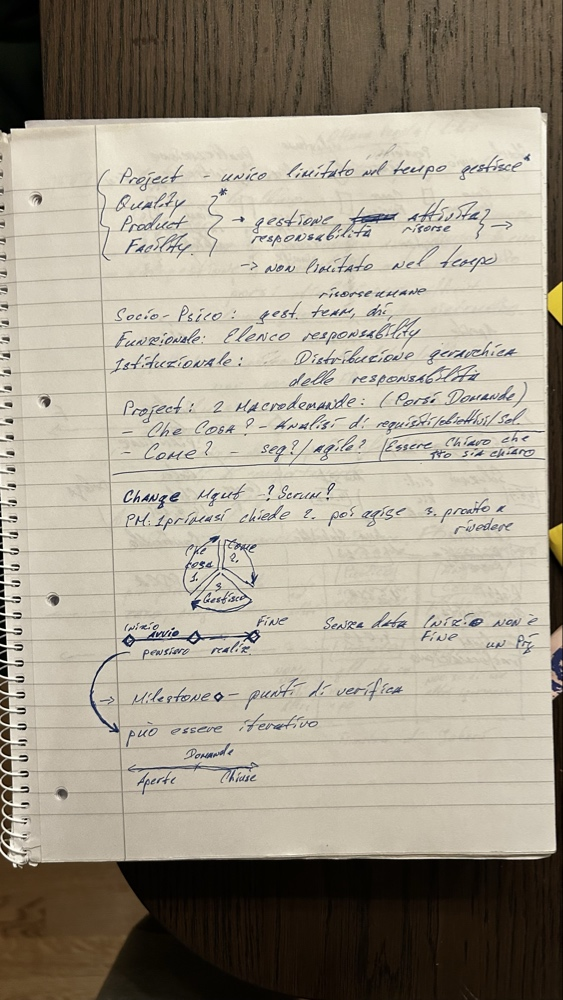 Project - unico limitato nel tempo gestisce*
Quality *
Product → gestione attività
Facility. responsabilità risorse →
→ non limitato nel tempo
risorse umane
Socio-Psico: gest. team,
Funzionale: Elenco responsability
Istituzionale: Distribuzione gerarchica
delle responsabilità
Project: 2 Macrodomande: (Porsi Domande)
- Che Cosa? - Analisi di requisiti/obiettivi/sol.
- Come? - seq?/agile? Essere Chiaro che
tto sia chiaro
Change Mgmt - ? Scrum?
PM: 1 prima si chiede 2. poi agisce 3. pronto a
rivedere
Che cosa 1.
Come 2.
3. Gestisco
Inizio Avvio Fine
pensiero realiz
Senza data Inizio non è
Fine un Prj
→ Milestone ◇ - punti di verifica
può essere iterativo
Domande
Aperte Chiuse